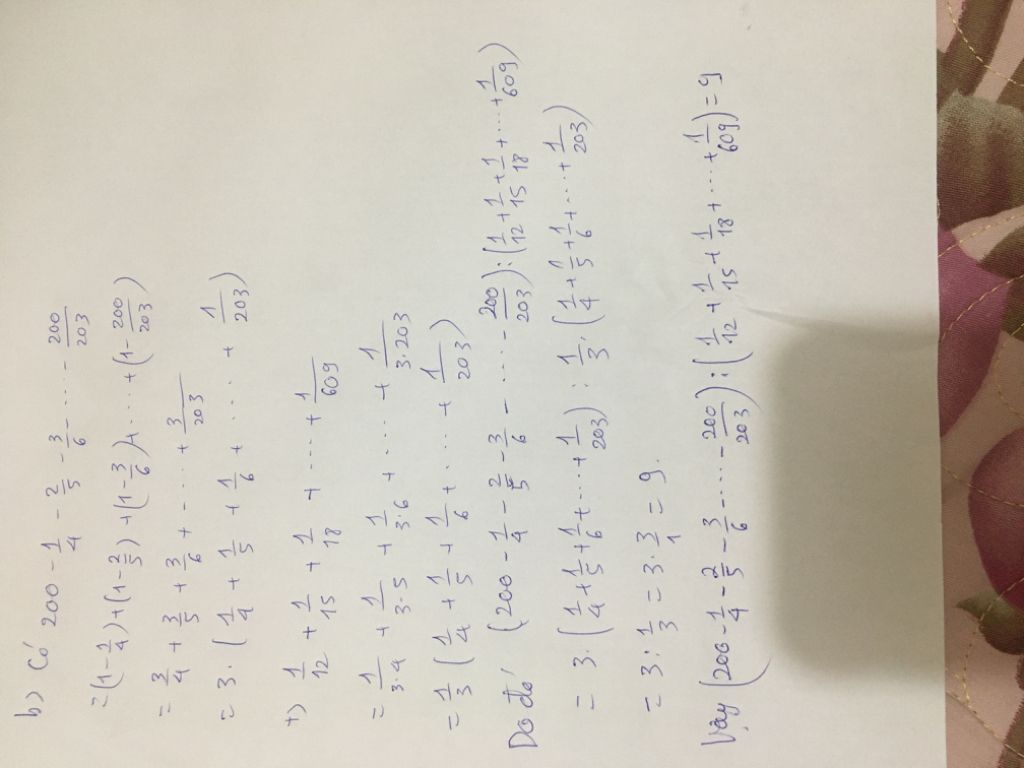 b) Có 200 - 1/4 - 2/5 - 3/6 - .... - 200/203
= (1 - 1/4) + (1 - 2/5) + (1 - 3/6) + .... + (1 - 200/203)
= 3/4 + 3/5 + 3/6 + - .... + 3/203
= 3 . (1/4 + 1/5 + 1/6 + .... + 1/203)
+) 1/12 + 1/15 + 1/18 + .... + 1/609
= 1/3.4 + 1/3.5 + 1/3.6 + .... + 1/3.203
= 1/3 (1/4 + 1/5 + 1/6 + .... + 1/203)
Do đó, (200 - 1/4 - 2/5 - 3/6 - .... - 200/203) : (1/12 + 1/15 + 1/18 + .... + 1/609)
= 3 . (1/4 + 1/5 + 1/6 + .... + 1/203) : 1/3 . (1/4 + 1/5 + 1/6 + .... + 1/203)
= 3 : 1/3 = 3 . 3/1 = 9.
Vậy (200 - 1/4 - 2/5 - 3/6 - .... - 200/203) : (1/12 + 1/15 + 1/18 + .... + 1/609) = 9